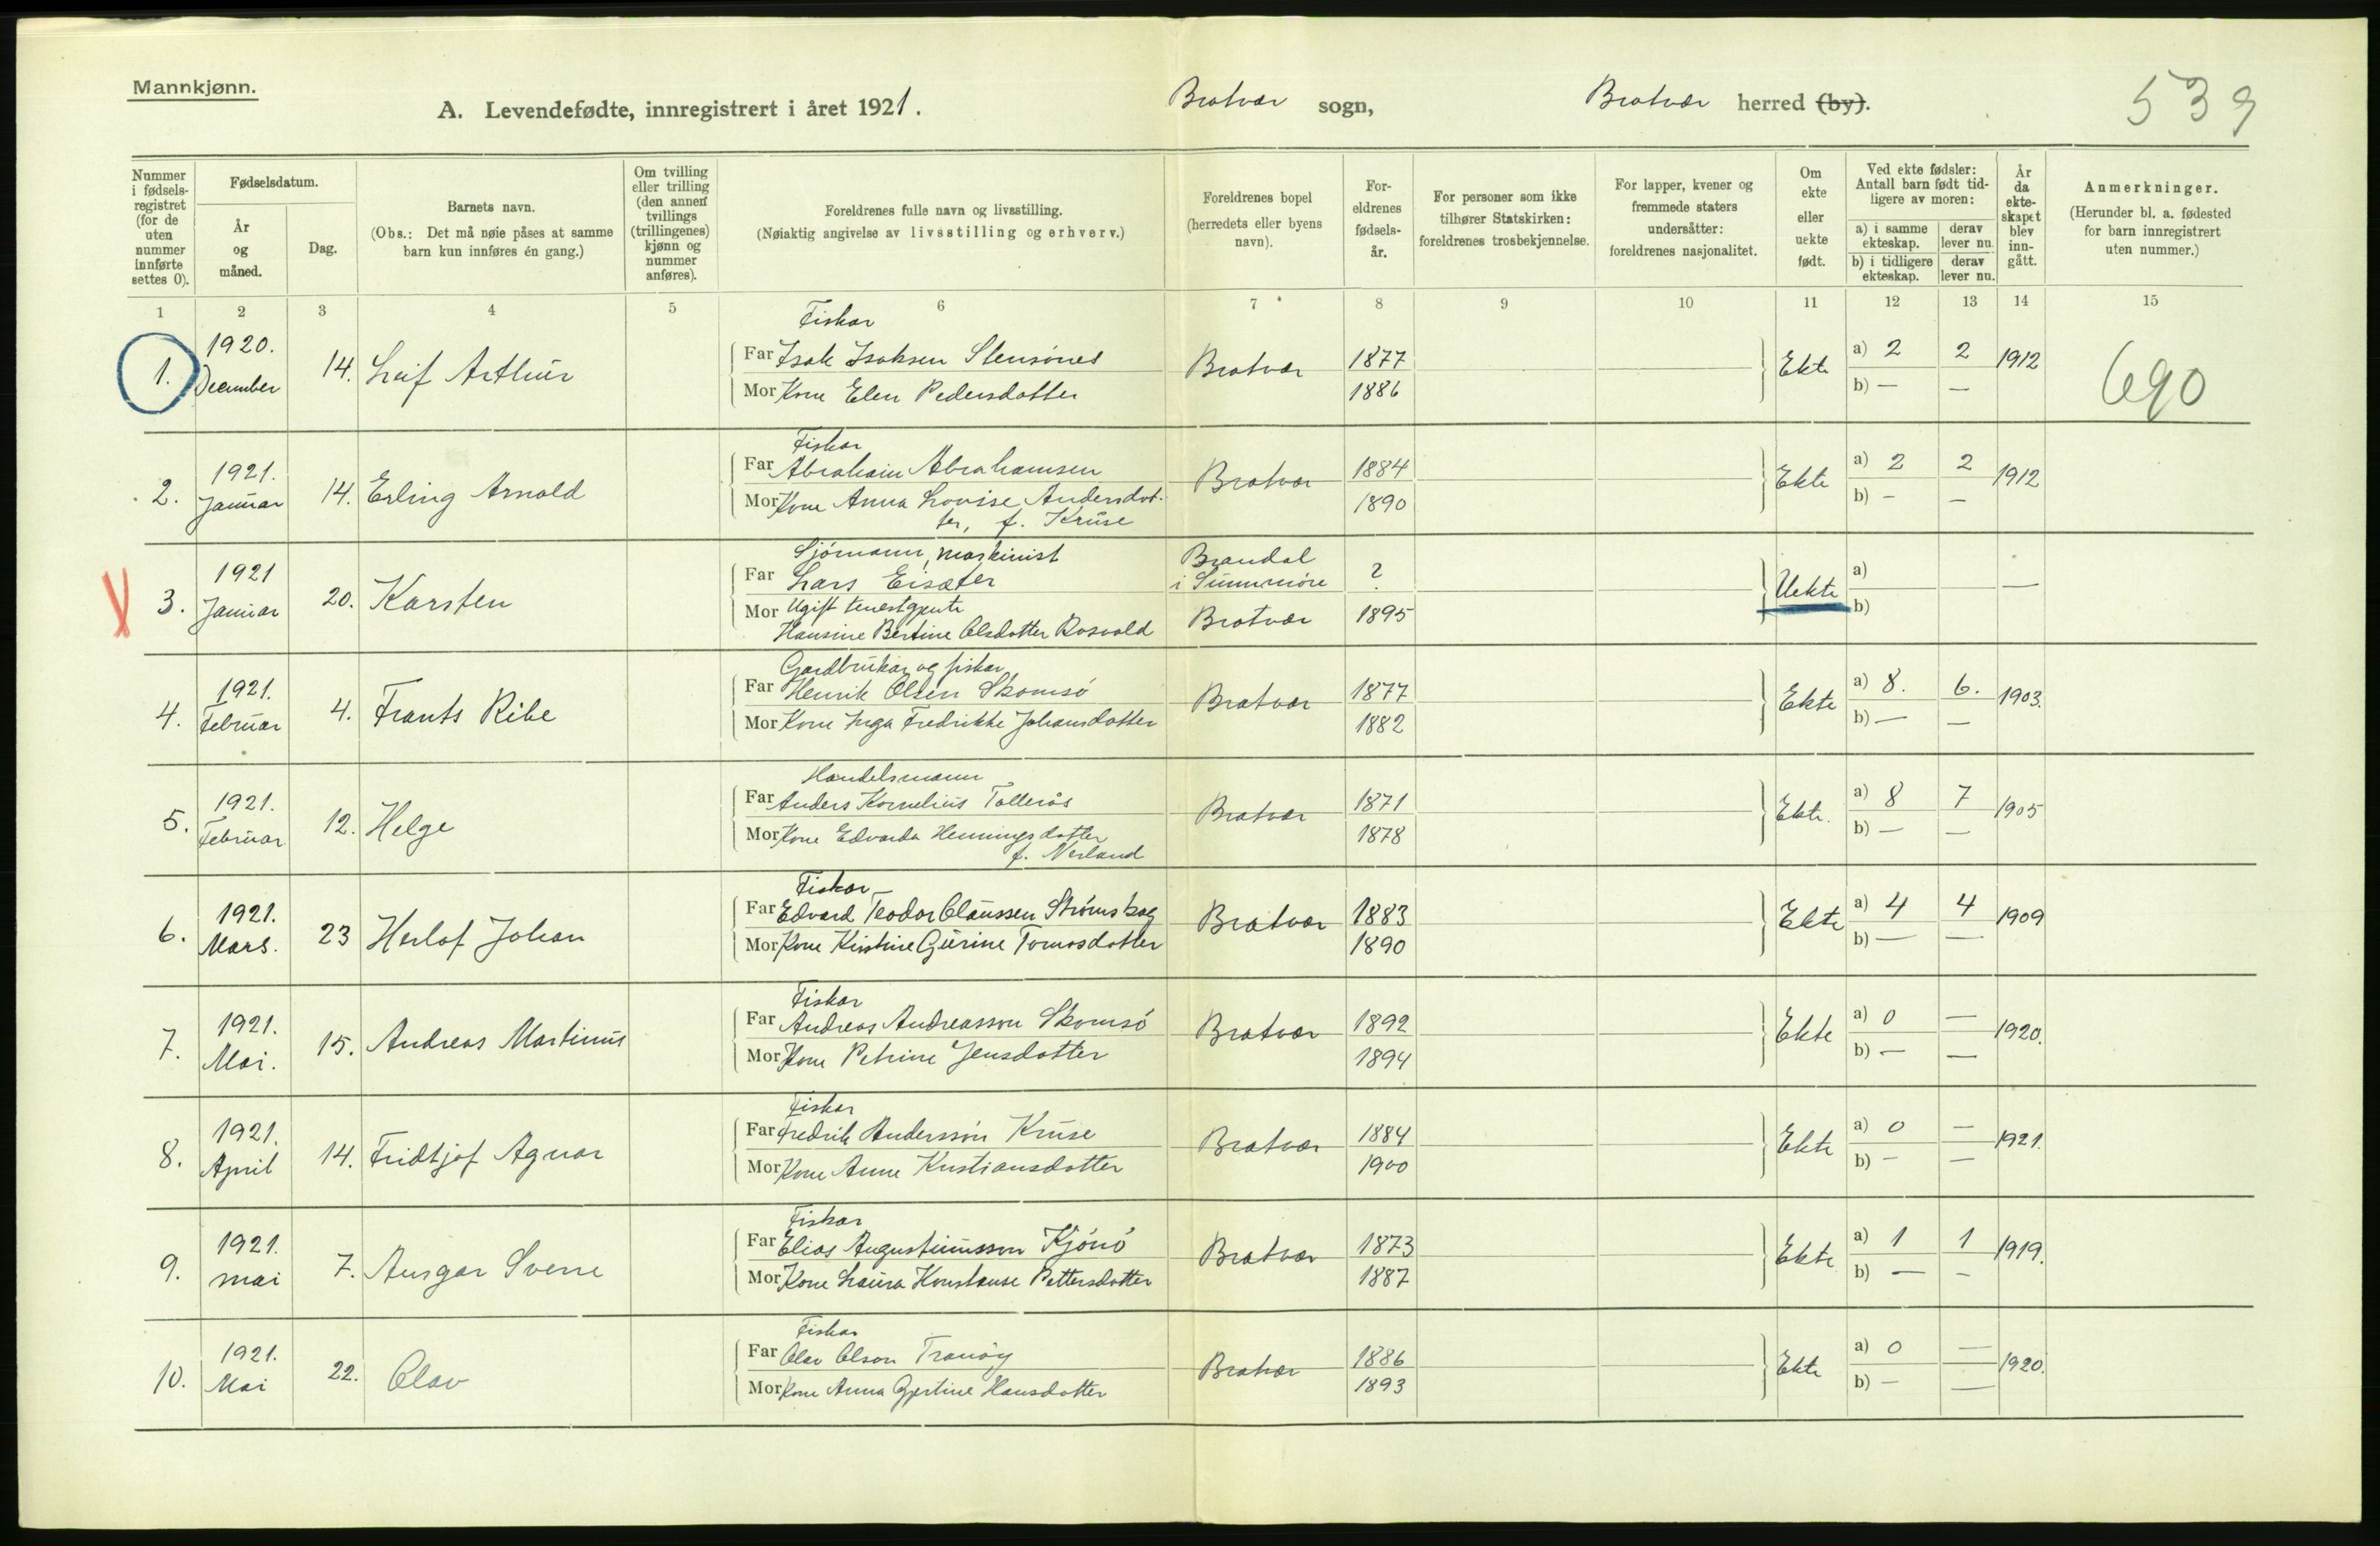 Mannkjønn.
A. Levendefødte, innregistrert i året 1921.
Bratvær sogn,
Bratvær herred (by).
539
Nummer i fødsels-registret (for de uten nummer innførte settes 0).
Fødselsdatum.
År og måned.
Dag.
Barnets navn.
(Obs.: Det må nøie påses at samme barn kun innføres én gang.)
Om tvilling eller trilling (den annen tvillings (trillingenes) kjønn og nummer anføres).
Foreldrenes fulle navn og livsstilling.
(Nøiaktig angivelse av livsstilling og erhverv.)
Foreldrenes bopel (herredets eller byens navn).
For-eldrenes fødsels-år.
For personer som ikke tilhører Statskirken: foreldrenes trosbekjennelse.
For lapper, kvener og fremmede staters undersåtter: foreldrenes nasjonalitet.
Om ekte eller uekte født.
Ved ekte fødsler: Antall barn født tid-ligere av moren:
a) i samme ekteskap.
derav lever nu.
b) i tidligere ekteskap.
derav lever nu.
År da ekte-skapet blev inn-gått.
Anmerkninger.
(Herunder bl. a. fødested for barn innregistrert uten nummer.)
1 2 3 4 5 6 7 8 9 10 11 12 13 14 15
Fiskar
1. 1920. December 14. Leif Arthur
Far Isak Isaksen Stensønes Bratvær 1877 Ekte a) 2 2 1912
Mor Kone Elen Pedersdotter 1886 b) — —
690
Fiskar
2. 1921. Januar 14. Erling Arnold
Far Abraham Abrahamsen Bratvær 1884 Ekte a) 2 2 1912
Mor Kone Anna Lovise Andersdot-ter, f. Kruse 1890 b) — —
Sjømann, maskinist
3. 1921 Januar 20. Karsten
Far Lars Eisæter Brandal i Sunnmøre ? Uekte a) —
Mor Ugift tenestgjente
Hansine Bertine Olsdotter Rosvold Bratvær 1895 b)
Gardbrukar og fiskar
4. 1921. Februar 4. Frants Ribe
Far Henrik Olsen Skomsø Bratvær 1877 Ekte a) 8. 6. 1903.
Mor Kone Inga Fredrikke Johansdotter 1882 b) — —
Handelsmann
5. 1921. Februar 12. Helge
Far Anders Kornelius Tollerås Bratvær 1871 Ekte. a) 8 7 1905
Mor Kone Edvarda Henningsdotter f. Nerland 1878 b) — —
Fiskar
6. 1921. Mars. 23 Herlof Johan
Far Edvard Teodor Claussen Strømskag Bratvær 1883 Ekte a) 4 4 1909
Mor Kone Kristine Gurine Tomasdotter 1890 b) — —
Fiskar
7. 1921. Mai. 15. Andreas Martinus
Far Andreas Andreasson Skomsø Bratvær 1892 Ekte a) 0 — 1920.
Mor Kone Petrine Jensdotter 1894 b) — —
Fiskar
8. 1921. April 14. Fridtjof Agnar
Far Fredrik Andersson Kruse Bratvær 1884 Ekte a) 0 — 1921.
Mor Kone Anne Kristiansdotter 1900 b) — —
Fiskar
9. 1921. mai 7. Ansgar Sverre
Far Elias Augustinusson Kjønø Bratvær 1873 Ekte a) 1 1 1919.
Mor Kone Laura Konstanse Pettersdotter 1887 b) — —
Fiskar
10. 1921. Mai 22. Olav
Far Olav Olson Tranøy Bratvær 1886 Ekte a) 0 — 1920.
Mor Kone Anna Gjertine Hansdotter 1893 b) — —